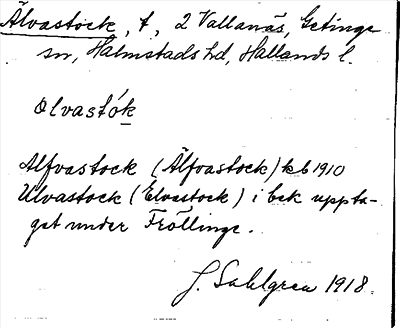 Älvastock, t, 2 Vallanäs, Getinge
sn, Halmstads hd, Hallands l.
Olvastók
Alfvastock (Älfvastock) kb 1910
Ulvastock (Elvastock) i bek uppta-
get under Fröllinge.
J. Sahlgren 1918.